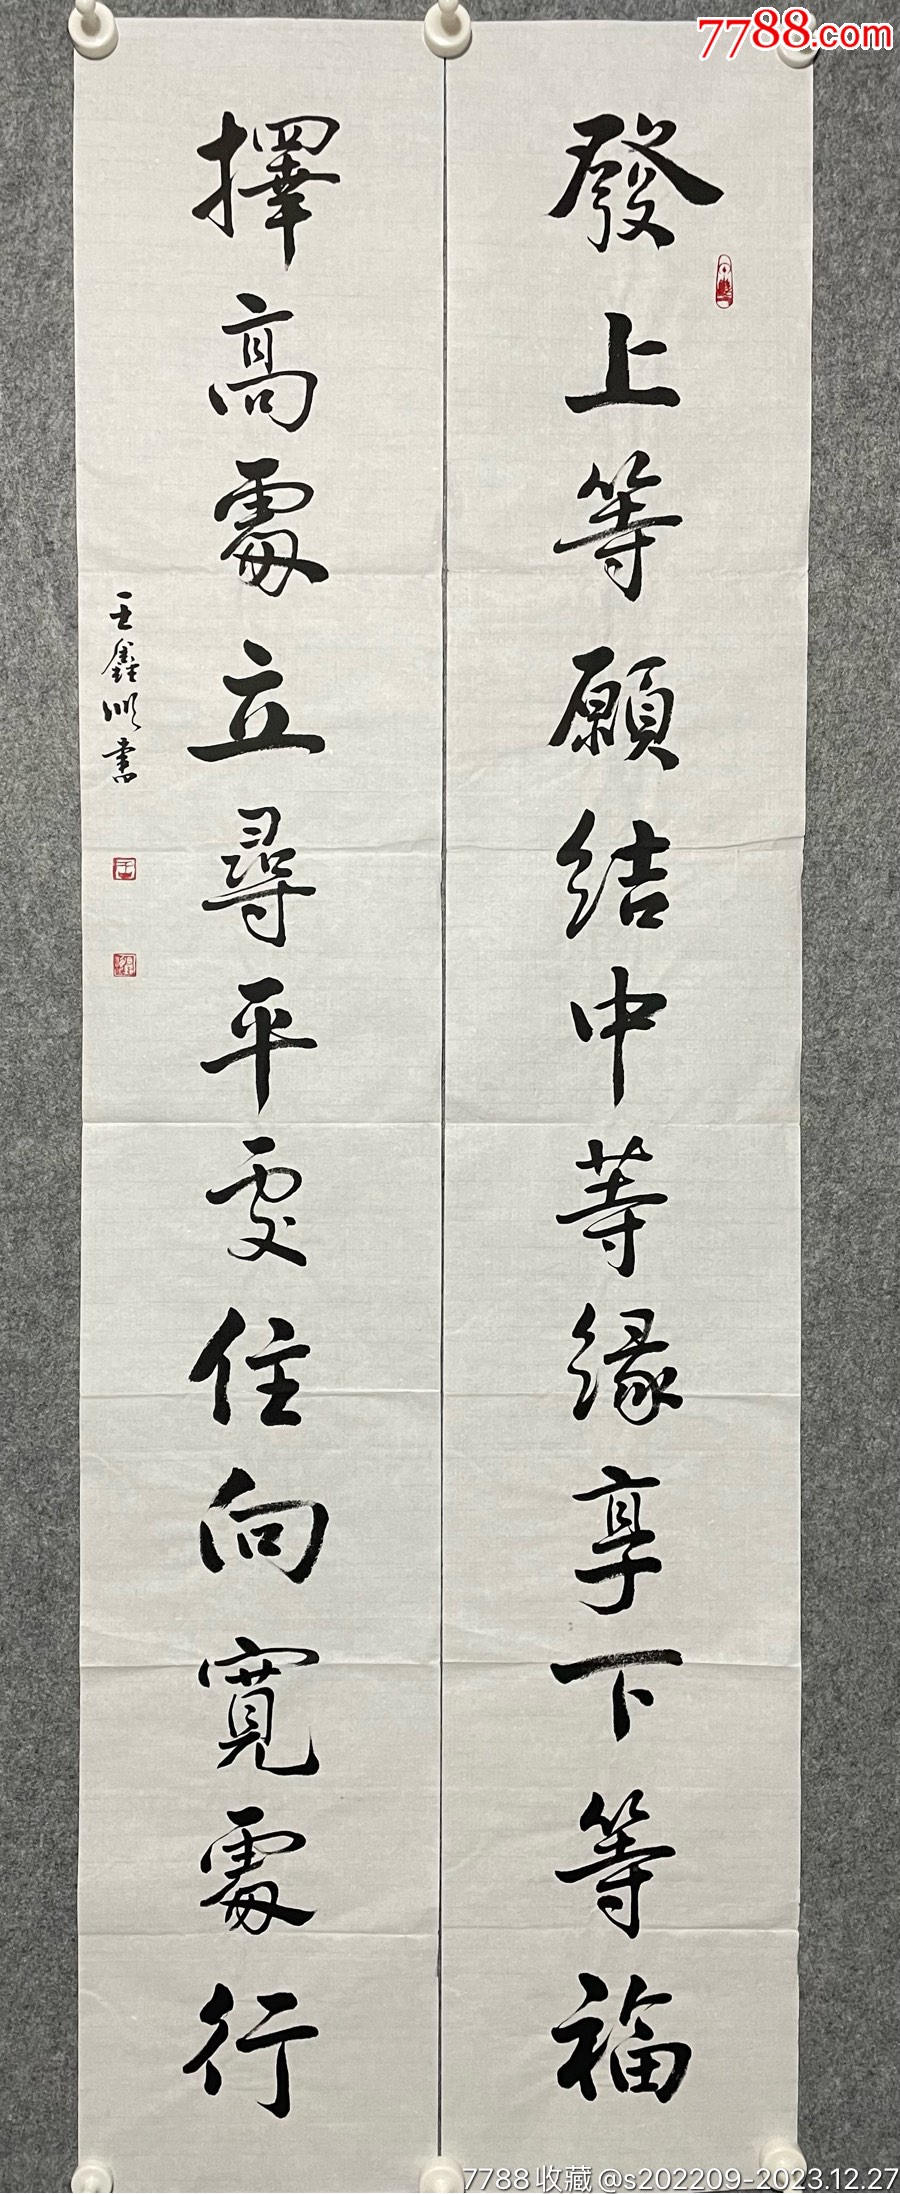 7788.com
發上等願結中等緣享下等福
擇高處立尋平處住向寬處行
王鑫順書
7788收藏@s202209-2023.12.27